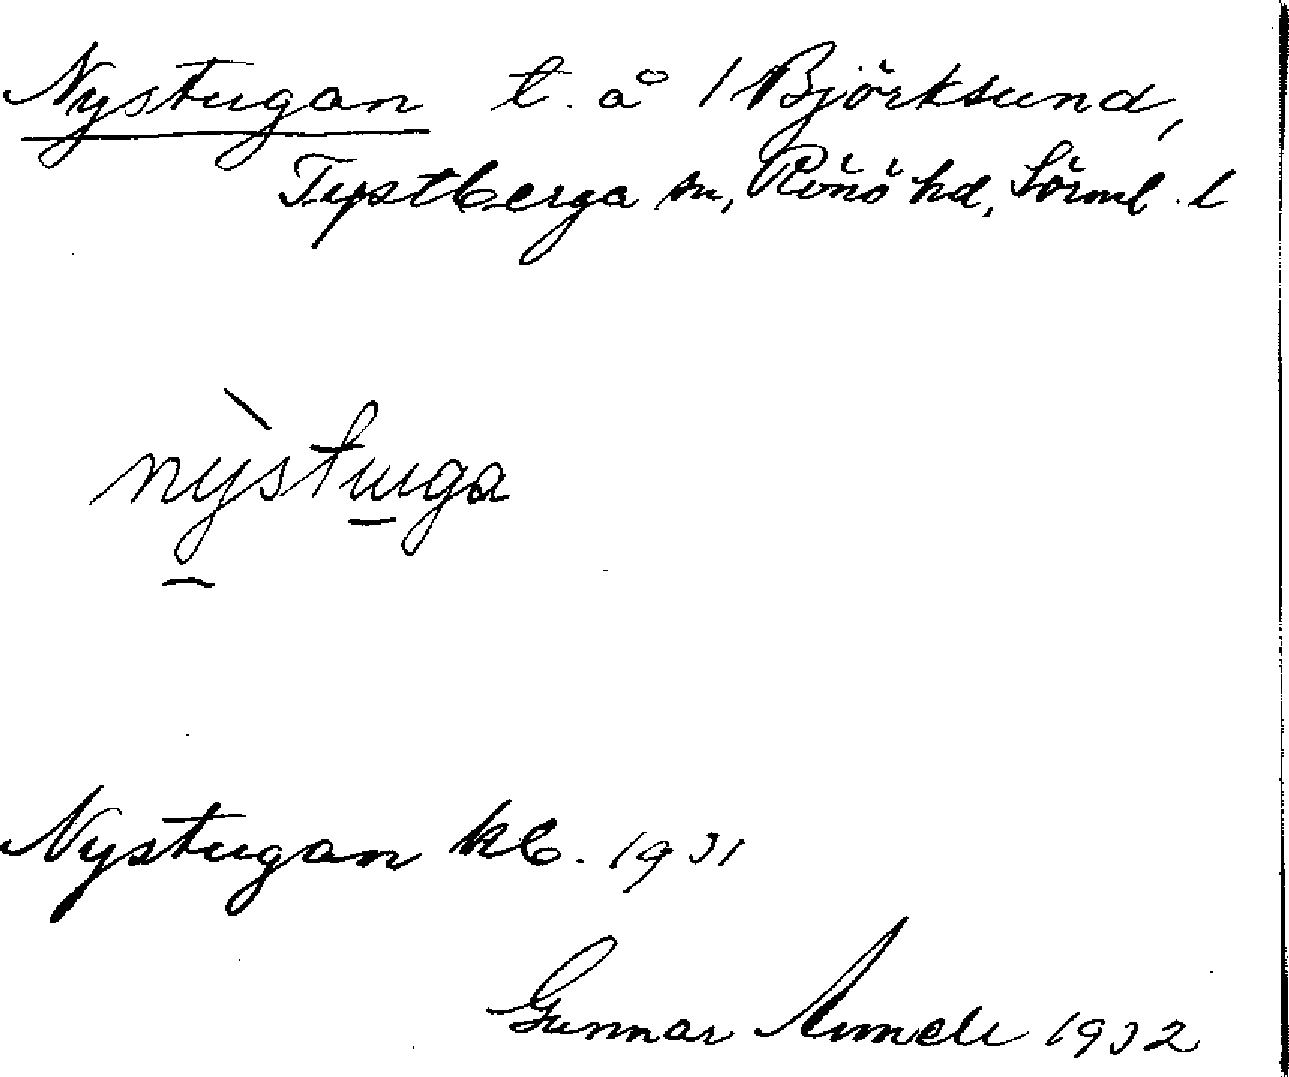 Nystugan t. å / Björksund,
Tystberga sn, Rönö hd, Sörml. l
nỳstuga
Nystugan kb. 1931
Gunnar 1932